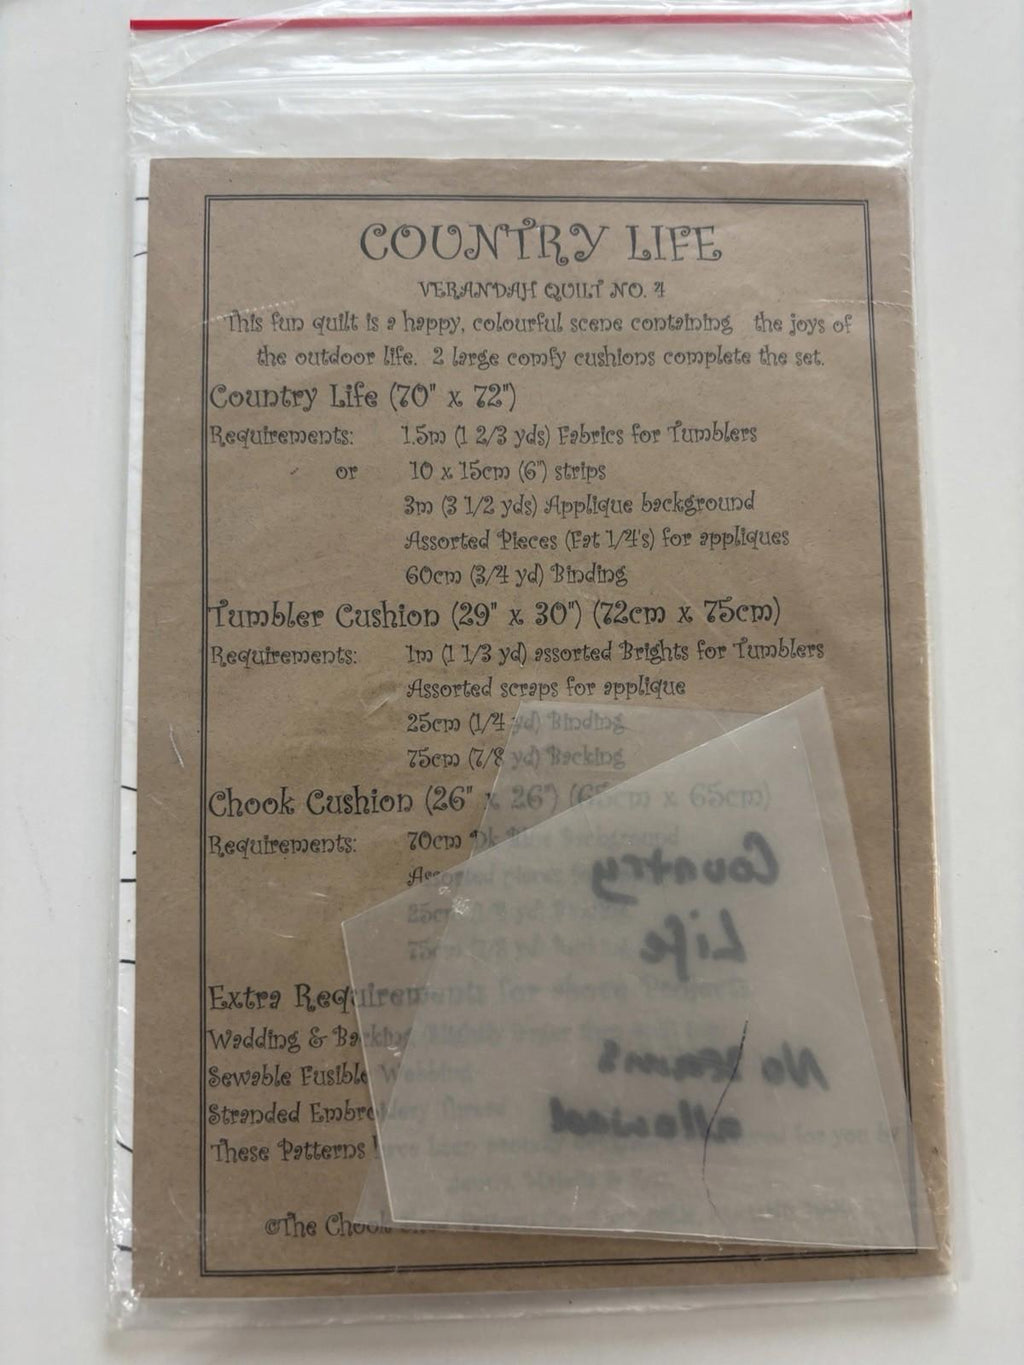 COUNTRY LIFE
VERANDAH QUILT NO. 4
This fun quilt is a happy, colourful scene containing the joys of
the outdoor life. 2 large comfy cushions complete the set.
Country Life (70" x 72")
Requirements: 1.5m (1 2/3 yds) Fabrics for Tumblers
or 10 x 15cm (6") strips
3m (3 1/2 yds) Applique background
Assorted Pieces (Fat 1/4's) for appliques
60cm (3/4 yd) Binding
Tumbler Cushion (29" x 30") (72cm x 75cm)
Requirements: 1m (1 1/3 yd) assorted Brights for Tumblers
Assorted scraps for applique
25cm (1/4 yd) Binding
75cm (7/8 yd) Backing
Chook Cushion (26" x 26") (65cm x 65cm)
Requirements: 70cm Dk Blue Background
Assorted pieces
25cm
75cm (7/8 yd)
Extra Requirements for above Projects
Wadding & Backing
Sewable Fusible Webbing
Stranded Embroidery Thread
These Patterns have been
©The Chook Shed
Country
Life
No seams
allowed